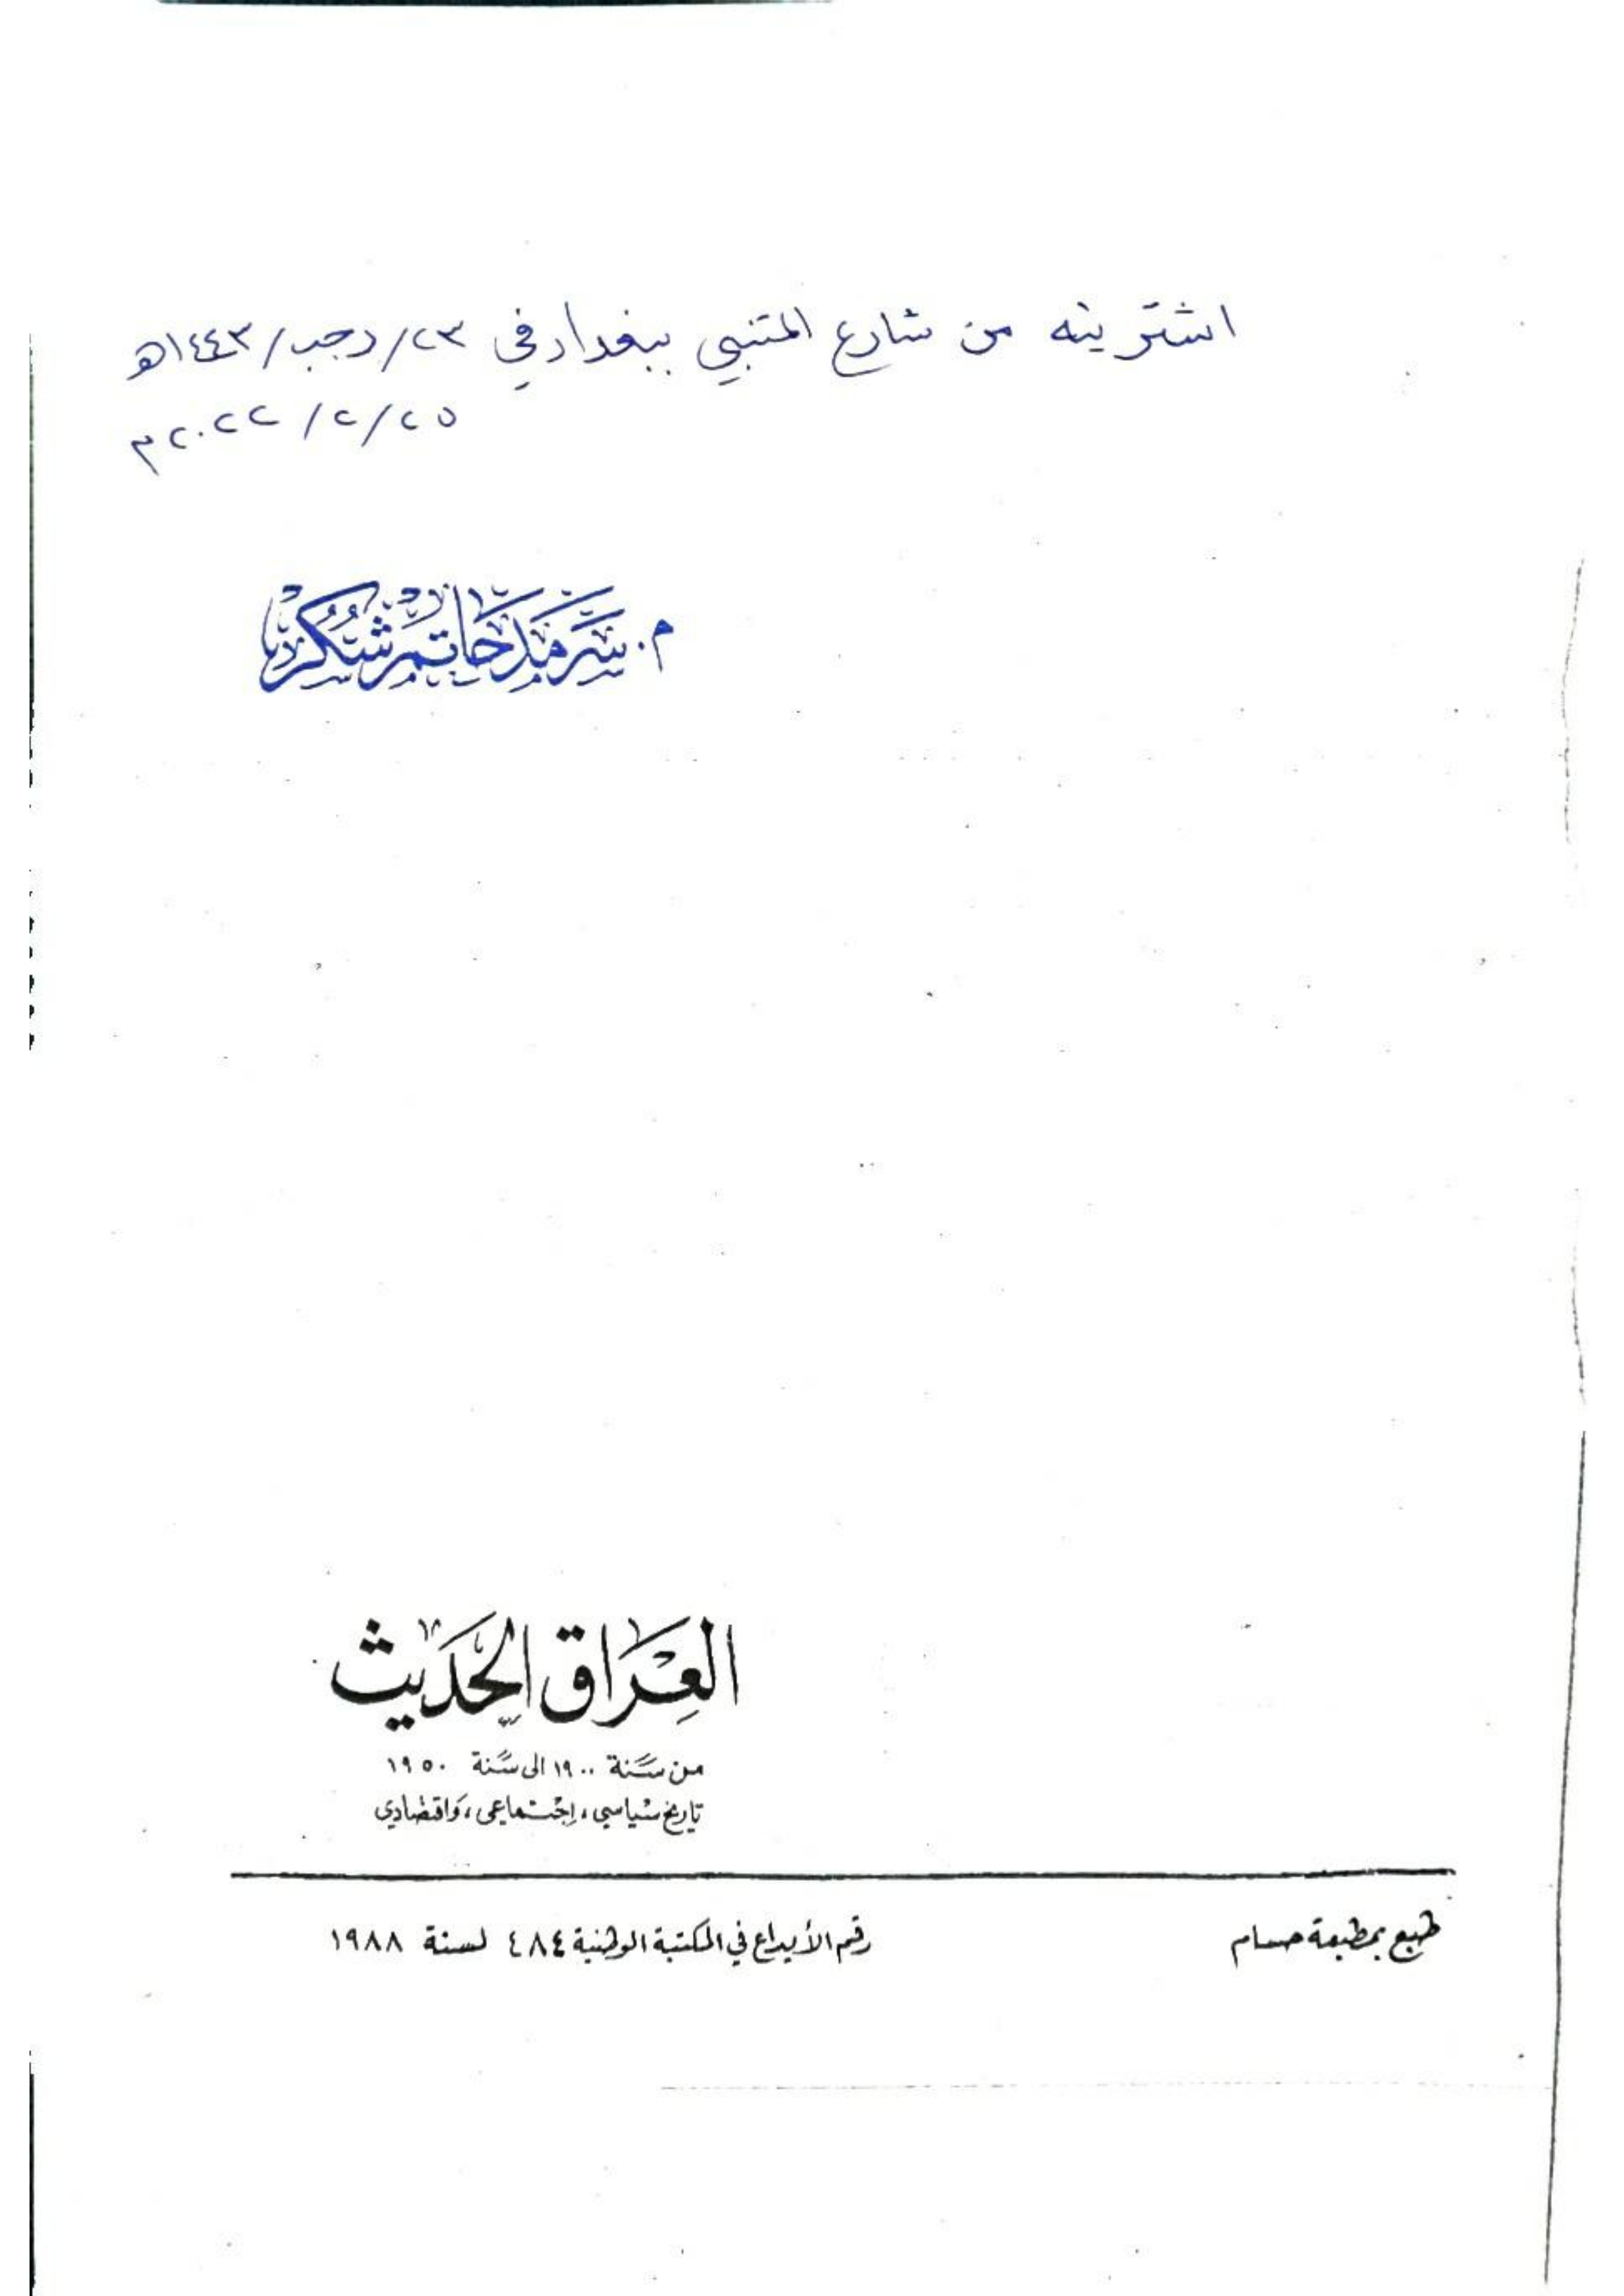 اشتريته من شارع المتنبي ببغداد في ٢٣/رجب/١٤٤٣هـ
٢٥/٢/٢٠٢٢م
م.سرمد حاتم شكر
العِرَاق الحَديث
من سَنة ١٩٠٠ الى سَنة ١٩٥٠
تاريخ سياسي، اجتماعي، واقتصادي
طبع بمطبعة حسام
رقم الأيداع في المكتبة الوطنية ٤٨٤ لسنة ١٩٨٨